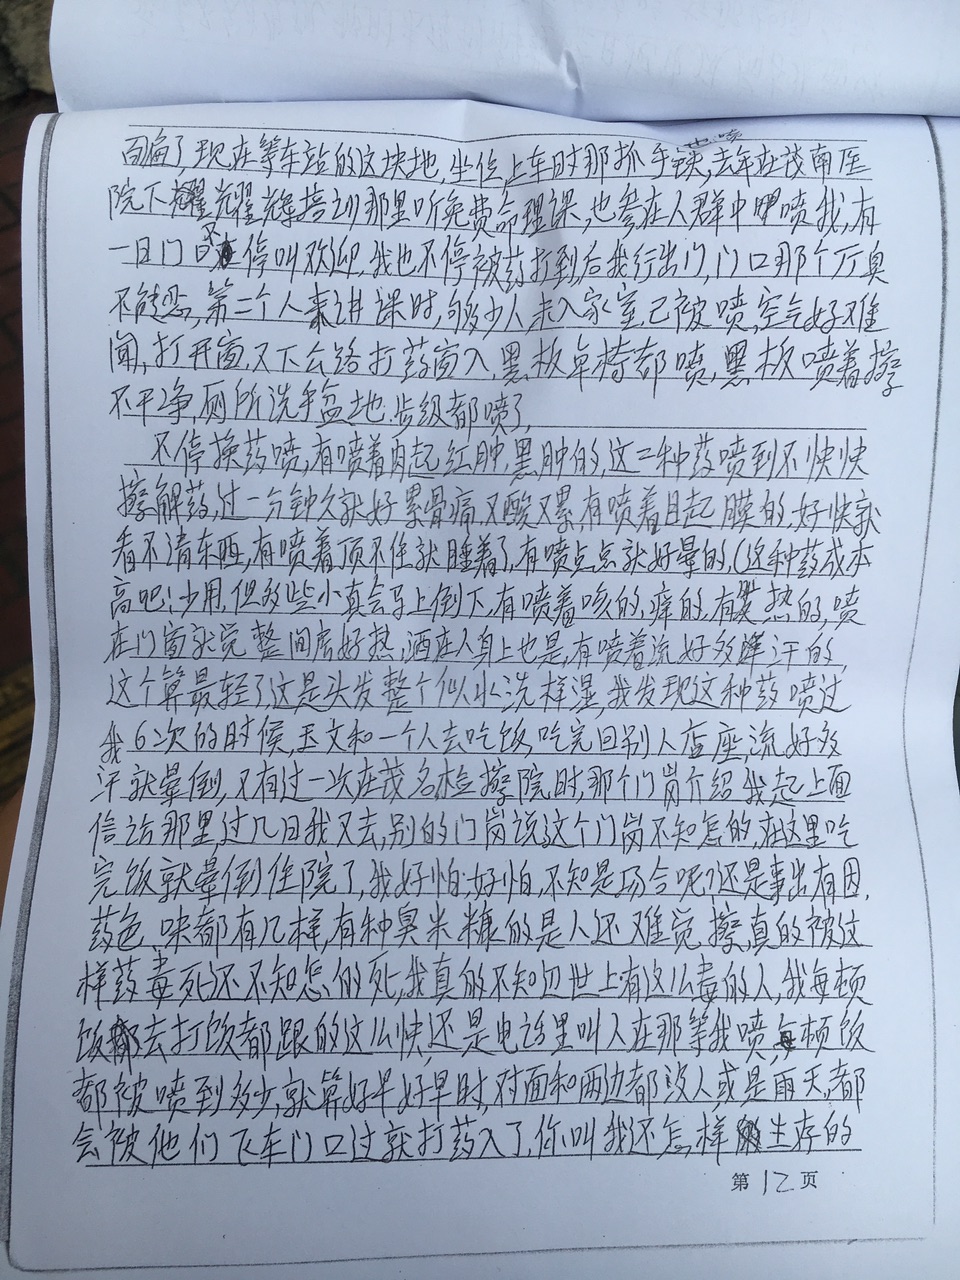 回遍了现在等车站的这块地,坐位,上车时那抓手
去年在茂南医
院下耀耀辉培训那里听免费命理课,也参在人群中喷我,有
一日门口不停叫欢迎,我也不停被药打到后我行出门,门口那个厅臭
不能忍,第二个人来讲课时,够多少人未入家室已被喷,空气好难
闻,打开窗,又下公路打药窗入,黑板卓椅都喷,黑板喷着擦
不干净,厕所洗手盆地.步级都喷了,
不停换药喷,有喷着肉起红肿,黑肿的,这二种药喷到不快快
擦解药,过一分钟久就好累骨痛,又酸又累,有喷着目起膜的,好快就
看不清东西,有喷着顶不住就睡着了,有喷点点就好晕的,(这种药成本
高吧!少用,但多些小真会马上倒下,有喷着咳的,痒的,有发热的,喷
在门窗就觉整间房好热,洒在人身上也是,有喷着流好多汗的,
这个算最轻了这是头发整个似水洗样湿,我发现这种药喷过
我6次的时候,玉文和一个人去吃饭,吃完回别人店座,流好多
汗就晕倒,又有过一次在茂名检察院时,那个门岗介绍我起上面
信访那里,过几日我又去,别的门岗说这个门岗不知怎的,在这里吃
完饭就晕倒住院了,我好怕.好怕,不知是巧合呢?还是事出有因,
药色、味都有几样,有种臭米糠的是人还难觉,擦,真的被这
样药毒死还不知怎的死,我真的不知这世上有这么毒的人,我每顿
饭去打饭都跟的这么快,还是电话里叫人在那等我喷,每顿饭
都被喷到多少,就算好早好早时,对面和两边都没人或是雨天,都
会被他们飞车门口过就打药入了,你叫我还怎样生存的
第12页